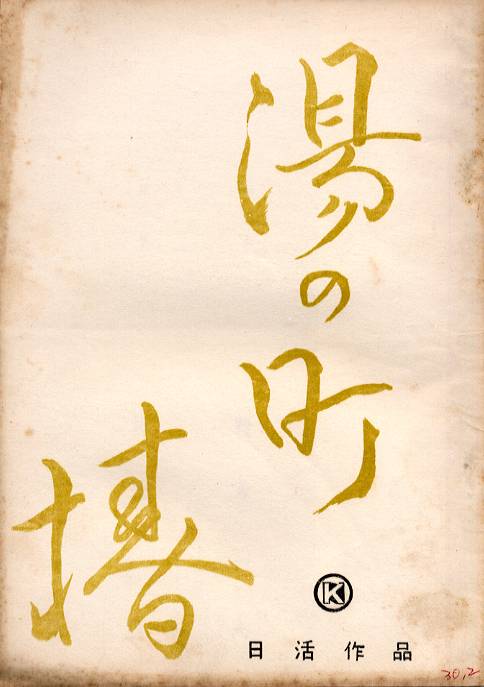 湯の町
椿
K
日活作品
30,2